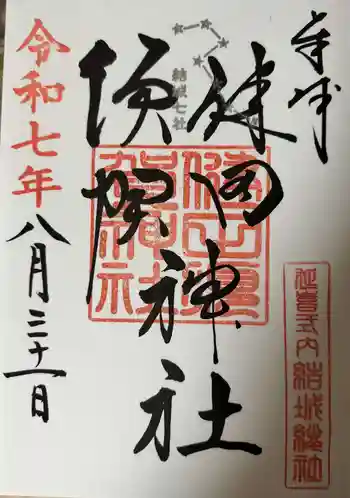 奉拝
健田神社
須賀神社
結城七社
延喜式内 結城総社
令和七年
八月三十一日